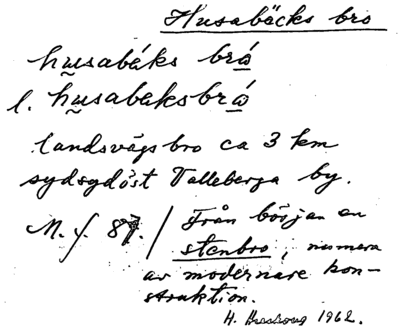 Husabäcks bro
husabáks brá
l. husabaksbrá
landsvägsbro ca 3 km
sydsydöst Valleberga by.
M. f. 87. / Från början en
stenbro, numera
av modernare kon-
struktion.
H. 1962.